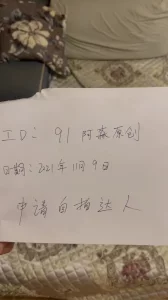 ID: 91 阿森原创
日期:2021年11月9日
申请自拍达人